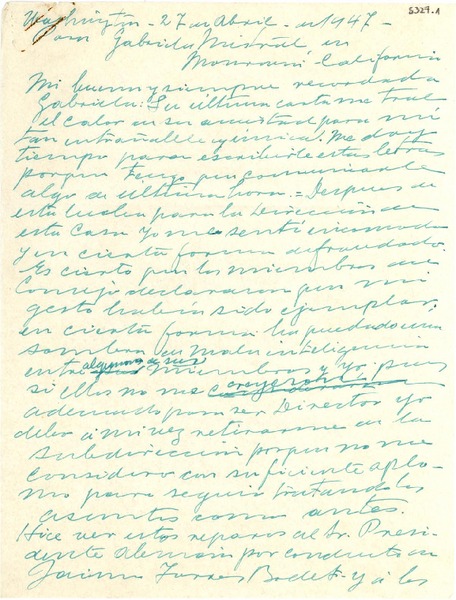 5329.A
Washington - 27 de Abril - de 1947 -
para Gabriela Mistral en
Monrovia - California
Mi buena y siempre recordada
Gabriela: Su ultima carta me trae
el calor de su amistad para mi
tan entrañable y unica. Me doy
tiempo para escribirle estas letras
porque tengo que comunicarle
algo de ultima hora. = Despues de
esta lucha para la Dirección de
esta Casa yo me sentí incomodo
y en cierta forma defraudado.
Es cierto que los miembros del
Consejo declararon que mi
gesto habia sido ejemplar;
en cierta forma ha quedado una
sombra de mala inteligencia
entre algunos de sus miembros y yo, pues
si ellos no me creyeron
adecuado para ser Director yo
debo á mi vez retirarme de la
subdirección porque no me
considero con suficiente aplo-
mo para seguir tratando los
asuntos como antes.
Hice ver estos reparos al Sr. Presi-
dente Alemán por conducto de
Jaime Torres Bodet y á los